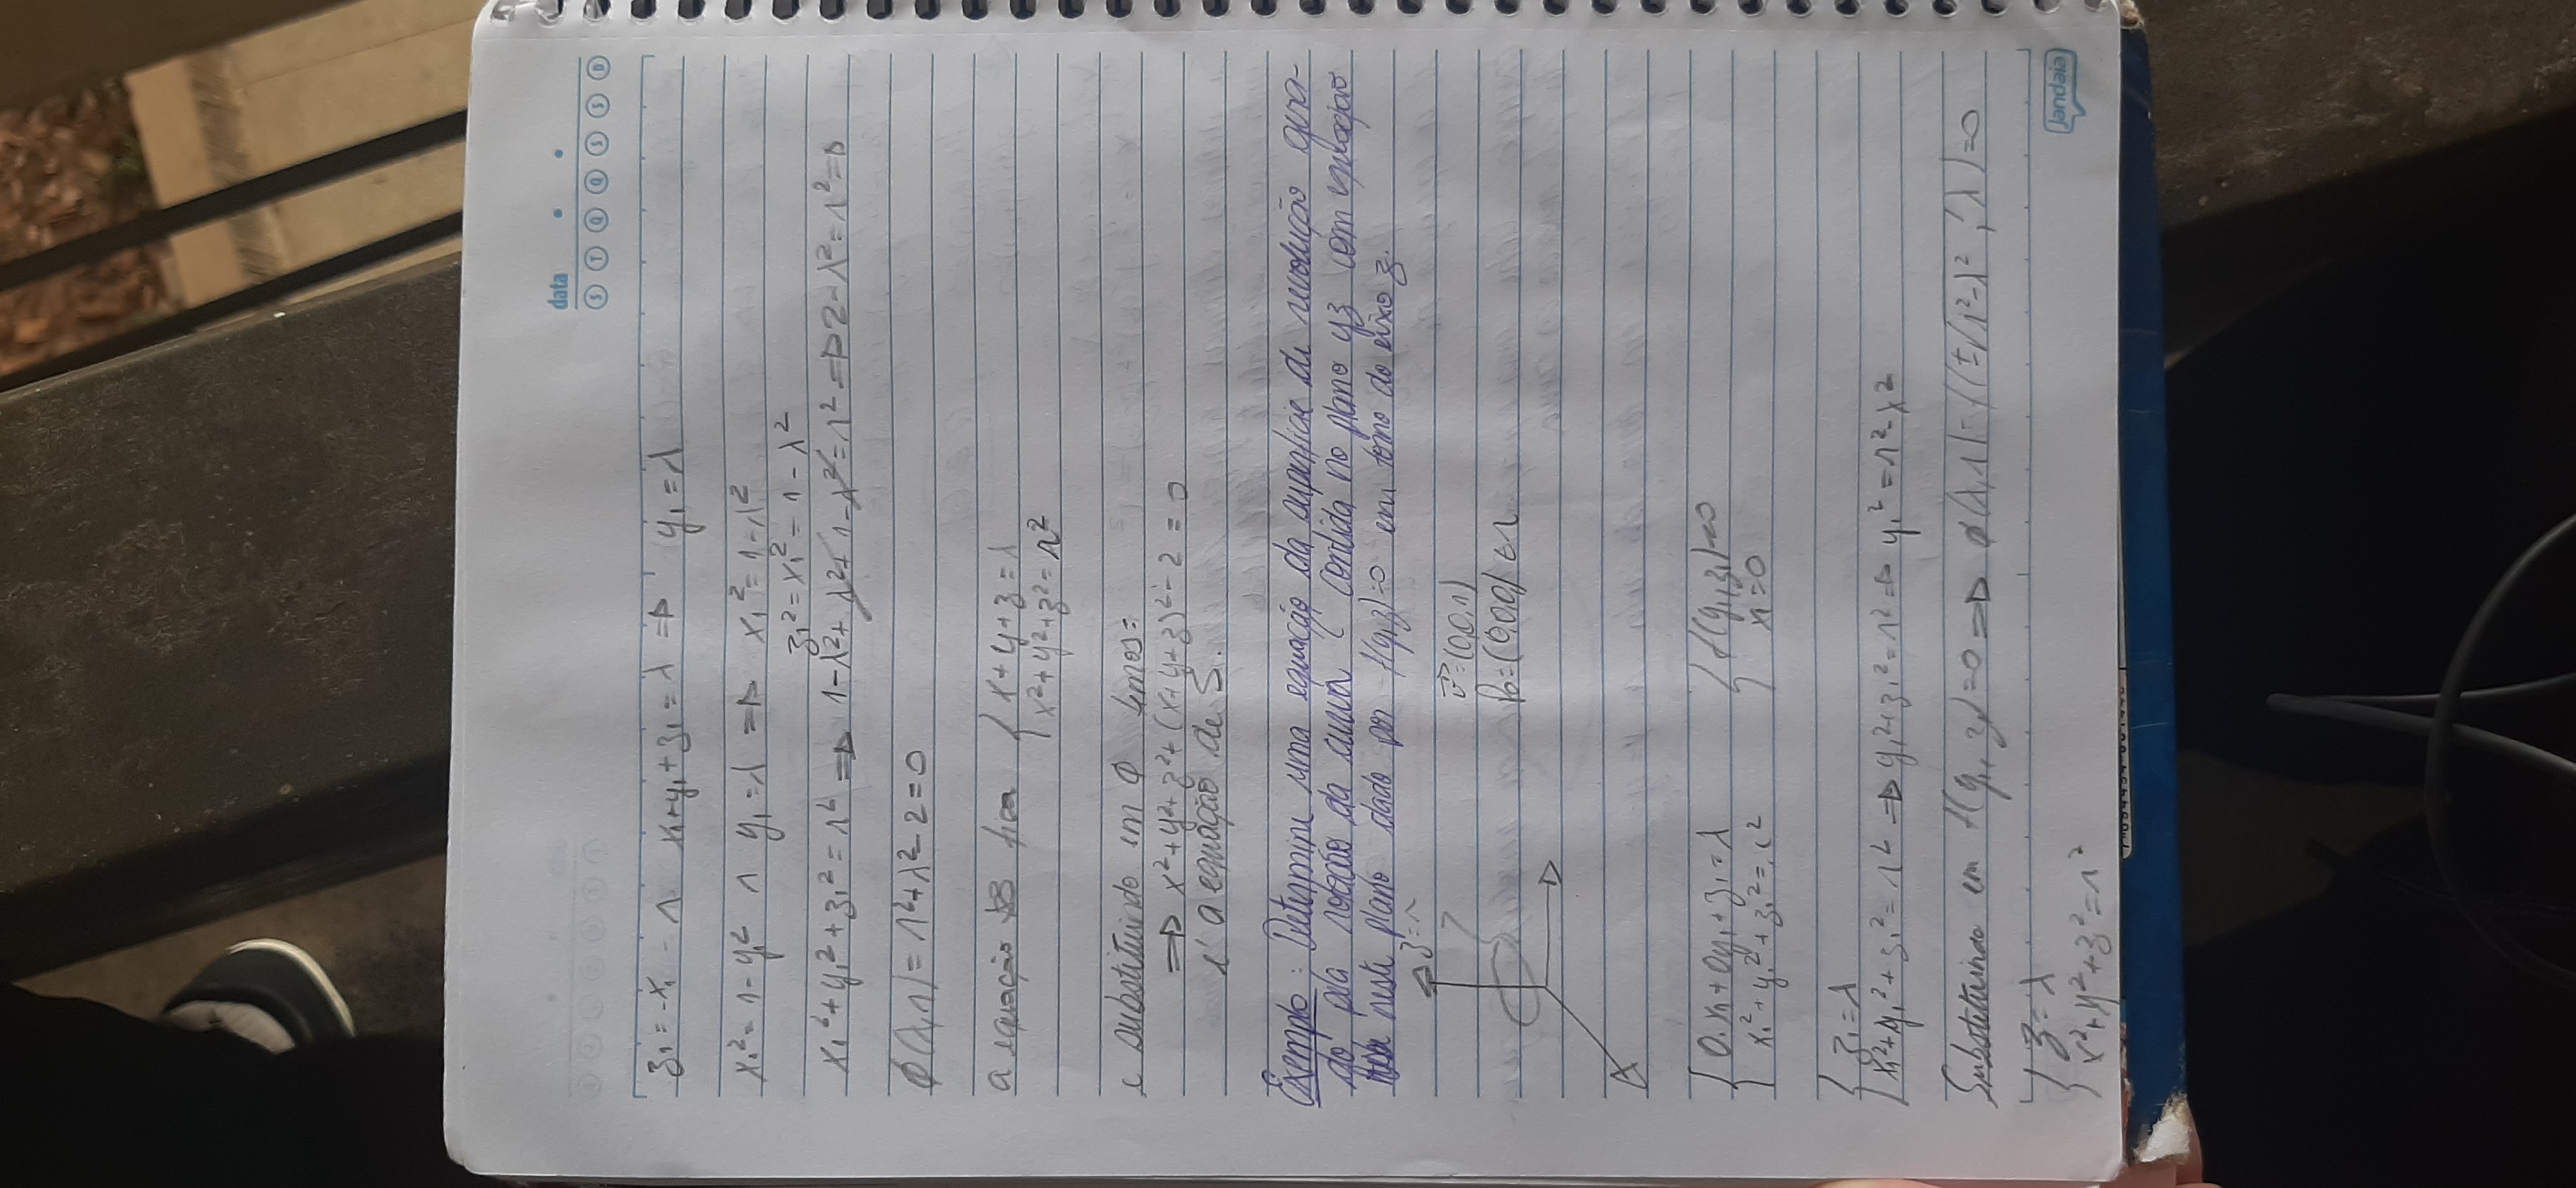 data
S T Q Q S S D
z₁ = -x₁ ∧ x₁+y₁+z₁ = λ ⇒ y₁ = λ
x₁² = 1-y₁² ∧ y₁ = λ ⇒ x₁² = 1-λ²
z₁² = x₁² = 1-λ²
x₁²+y₁²+z₁² = r² ⇒ 1-λ²+λ²+1-λ² = r² ⇒ 2-λ² = r² ⇒
φ(λ,r) = r²+λ²-2 = 0
a equação fica { x+y+z = λ
x²+y²+z² = r²
e substituindo em φ temos:
⇒ x²+y²+z²+(x+y+z)²-2 = 0
é a equação de S.
Exemplo: Determine uma equação da superfície de revolução gera-
do pela rotação da curva C contida no plano yz com equação
neste plano dado por f(y,z)=0 em torno do eixo z.
z=r
v⃗=(0,0,1)
P₀=(0,0,0) ∈ r
{ 0.x₁+0y₁+z₁ = λ { f(y₁,z₁)=0
x₁²+y₁²+z₁² = r² x₁=0
{ z₁ = λ
x₁²+y₁²+z₁² = r² ⇒ y₁²+z₁² = r² ⇒ y₁² = r²-λ²
Substituindo em f(y₁,z₁)=0 ⇒ φ(λ,r) = f(±√r²-λ², λ)=0
{ z = λ
x²+y²+z² = r²
Jandaia